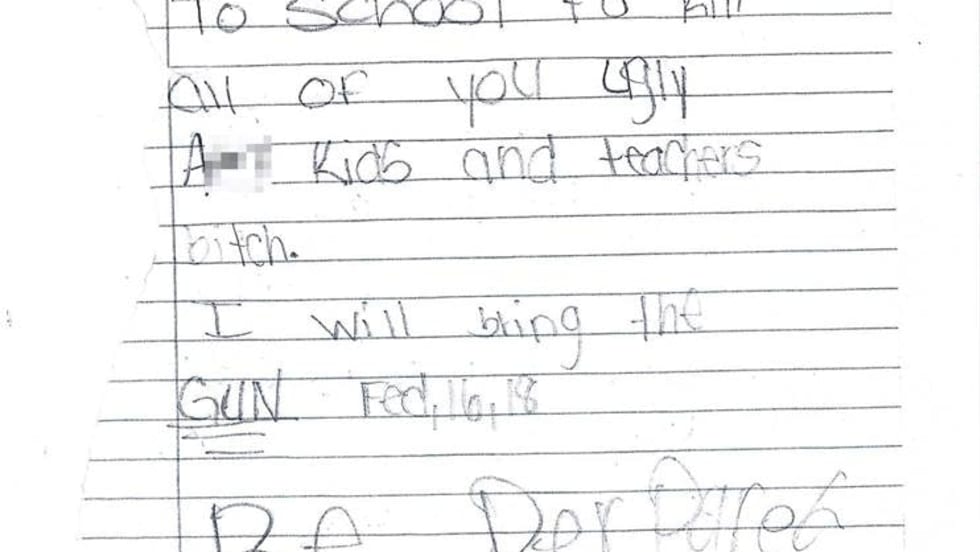 To School to kill
all of you ugly
A Kids and teachers
bitch.
I will bring the
GUN Fed,16,18
Be